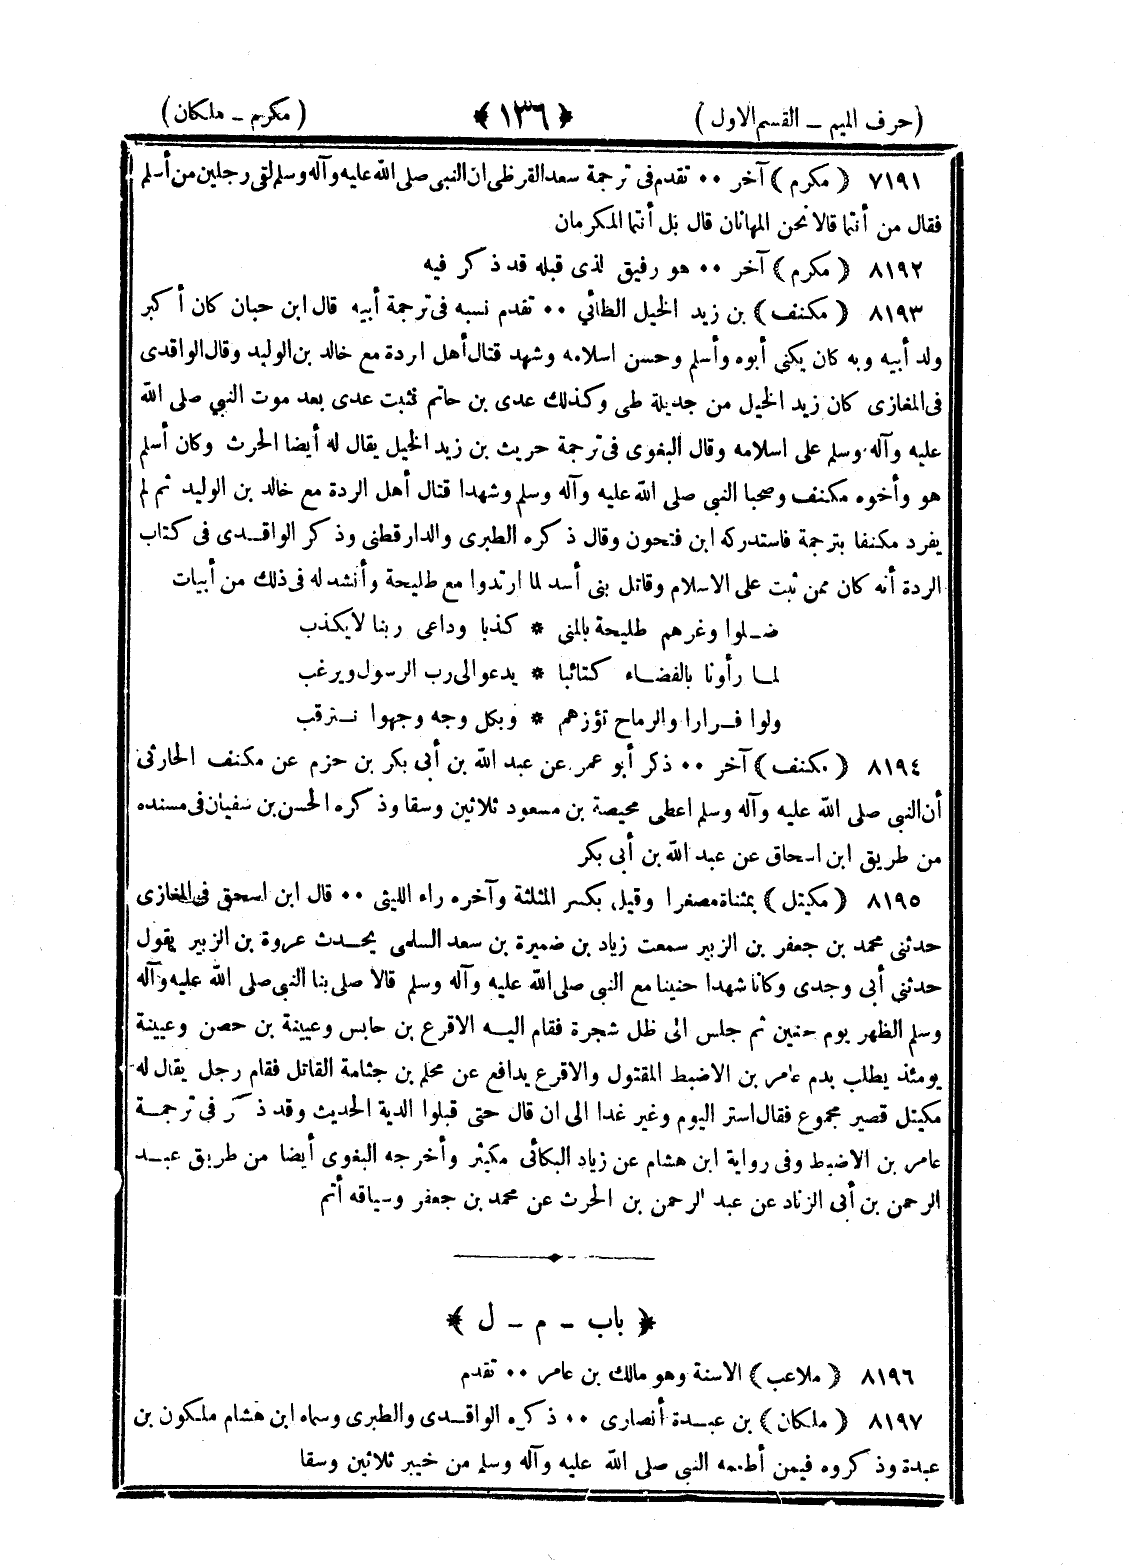 (حرف الميم ـ القسم الاول) ﴿١٣٦﴾ (مكرم ـ ملكان)
٧١٩١ (مكرم) آخر ٠٠ تقدم فى ترجمة سعد القرظى ان النبى صلى الله عليه وآله وسلم لقى رجلين من أسلم
فقال من أنتما قالا نحن المهانان قال بل أنتما المكرمان
٨١٩٢ (مكرم) آخر ٠٠ هو رفيق لذى قبله قد ذكر فيه
٨١٩٣ (مكنف) بن زيد الخيل الطائي ٠٠ تقدم نسبه فى ترجمة أبيه قال ابن حبان كان أكبر
ولد أبيه وبه كان يكنى أبوه وأسلم وحسن اسلامه وشهد قتال أهل اردة مع خالد بن الوليد وقال الواقدى
فى المغازى كان زيد الخيل من جديلة طى وكذلك عدى بن حاتم فثبت عدى بعد موت النبي صلى الله
عليه وآله وسلم على اسلامه وقال البغوى فى ترجمة حريث بن زيد الخيل يقال له أيضا الحرث وكان أسلم
هو وأخوه مكنف وصحبا النبي صلى الله عليه وآله وسلم وشهدا قتال أهل الردة مع خالد بن الوليد ثم لم
يفرد مكنفا بترجمة فاستدركه ابن فتحون وقال ذكره الطبرى والدارقطنى وذكر الواقدى فى كتاب
الردة أنه كان ممن ثبت على الاسلام وقاتل بنى أسد لما ارتدوا مع طليحة وأنشد له فى ذلك من أبيات
ضلوا وغرهم طليحة بالمنى * كذبا وداعى ربنا لا يكذب
لما رأونا بالفضاء كتائبا * يدعو الى رب الرسول ويرغب
ولوا فرارا والرماح تؤزهم * وبكل وجه وجهوا نترقب
٨١٩٤ (مكنف) آخر ٠٠ ذكر أبو عمر عن عبد الله بن أبى بكر بن حزم عن مكنف الحارثى
أن النبى صلى الله عليه وآله وسلم اعطى محيصة بن مسعود ثلاثين وسقا وذكره الحسن بن سفيان فى مسنده
من طريق ابن اسحاق عن عبد الله بن أبى بكر
٨١٩٥ (مكيتل) بمثناة مصغرا وقيل بكسر المثلثة وآخره راء الليثى ٠٠ قال ابن اسحق فى المغازى
حدثنى محمد بن جعفر بن الزبير سمعت زياد بن ضميرة بن سعد السلمى يحدث عروة بن الزبير يقول
حدثنى أبى وجدى وكانا شهدا حنينا مع النبى صلى الله عليه وآله وسلم قالا صلى بنا النبى صلى الله عليه وآله
وسلم الظهر يوم حنين ثم جلس الى ظل شجرة فقام اليه الاقرع بن حابس وعيينة بن حصن وعيينة
يومئذ يطلب بدم عامر بن الاضبط المقتول والاقرع يدافع عن محلم بن جثامة القاتل فقام رجل يقال له
مكيتل قصير مجموع فقال استر اليوم وغير غدا الى ان قال حتى قبلوا الدية الحديث وقد ذكر فى ترجمة
عامر بن الاضبط وفى رواية ابن هشام عن زياد البكائى مكيثر وأخرجه البغوى أيضا من طريق عبد
الرحمن بن أبى الزناد عن عبد الرحمن بن الحرث عن محمد بن جعفر وسياقه أتم
﴿ باب ـ م ـ ل ﴾
٨١٩٦ (ملاعب) الاسنة وهو مالك بن عامر ٠٠ تقدم
٨١٩٧ (ملكان) بن عبدة أنصارى ٠٠ ذكره الواقدى والطبرى وسماه ابن هشام ملكون بن
عبدة وذكروه فيمن أطعمه النبي صلى الله عليه وآله وسلم من خيبر ثلاثين وسقا